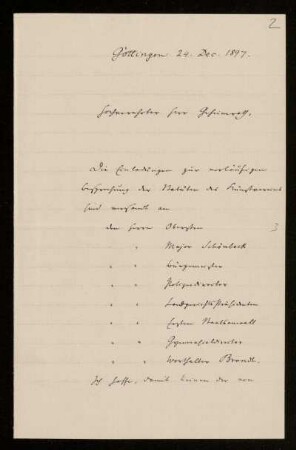 2
Göttingen 24. Dec. 1897.
Hochverehrter Herr Geheimrath,
Die Einladungen zur vorläufigen
Besprechung der Statuten des Kunstvereins
sind versandt an
den Herrn Obersten
3
" " Major Schönbeck
" " Bürgermeister
" " Polizeidirector
" " Landgerichtspräsidenten
" " Ersten Staatsanwalt
" " Gymnasialdirector
" " Worthalter Brandi.
Ich hoffe, damit keinen der von